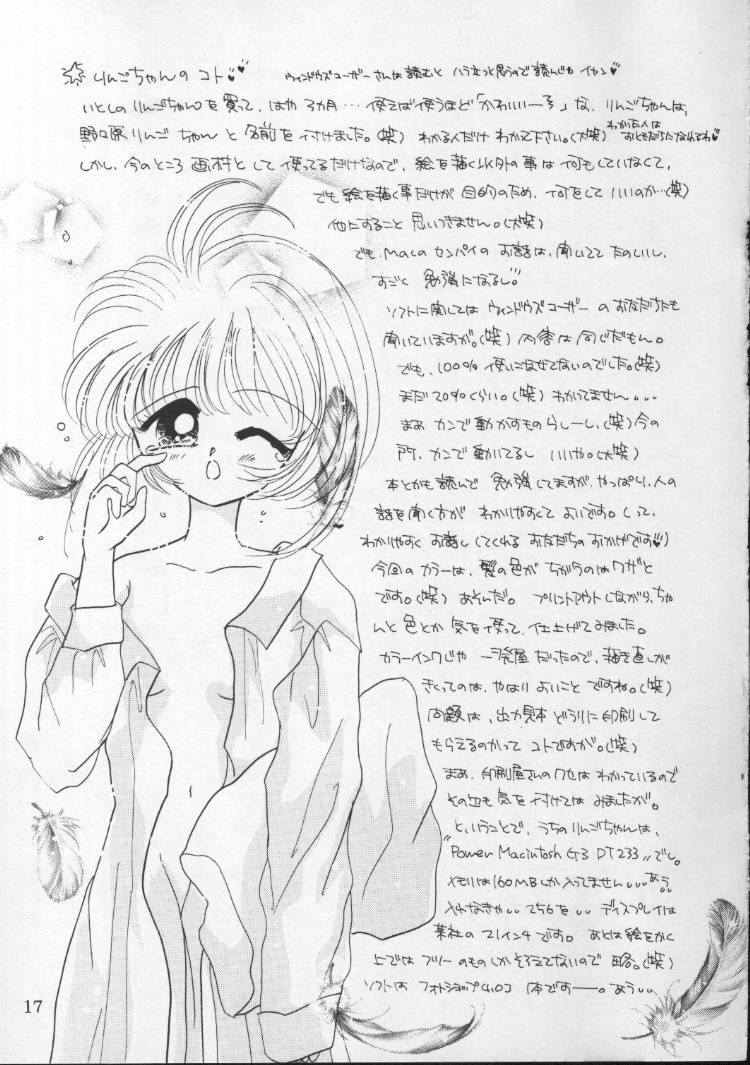 りんごちゃんの コト
ウィンドウズユーザーさんは読むと ハラ立つと思うので 読んじゃ イヤン
いとしの りんごちゃんを 買って、はや 3カ月… 使えば使うほど「かわいいーろ」な、りんごちゃんは、
野々原りんご ちゃん と 名前を 付けました。(笑) わかる人だけ わかって下さい。(大笑) わかった人は おともだちになれてわ
しかし、今のところ 画材として 使ってるだけなので、絵を描く以外の事は 何もしていなくて、
でも 絵を描く事だけが 目的のため、何をして いいのか…(笑)
他にすること 思いつきません。(大笑)
でも、Macの センパイの お話は、聞いてて たのしいし、
すごく 勉強になるし。
ソフトに関しては ウィンドウズユーザー の お友だちにも
聞いていますが。(笑) 内容は 同じだもん。
でも、100% 使いこなせてないのでした。(笑)
まだ 20%くらい。(笑) わかってません...
まあ カンで 動かすもの らしーし、(笑) 今の
所、カンで 動いてるし いいや。(大笑)
本とかも 読んで 勉強してますが、やっぱり、人の
話を聞く方が わかりやすくて よいです。(って、
わかりやすく お話し してくれる お友だちの おかげです)
今回の カラーは、髪の色が ちがうのは ワザと
です。(笑) あそんだ。 プリントアウト しながら、ちゃ
んと 色とか 気を使って、仕上げてみました。
カラーインクじゃ 一発屋 だったので、描き直しが
きくってのは、やはり よいこと ですね。(笑)
問題は、出力見本 どうりに 印刷して
もらえるのかって コトですが。(笑)
まあ、印刷屋さんの クセは わかっているので
その辺も 気を 付けては みましたが。
と、いうことで、うちの りんごちゃんは、
"Power Macintosh G3 DT233" でし。
メモリは 160MB しか 入ってません... あう
入れなきゃ.. て256を.. ディスプレイは
某社の 21インチ です。 あとは 絵をかく
上では フツーの ものしか そろえてないので 略。(笑)
ソフトは フォトショップ4.0J 1本ですーー。あう..
17